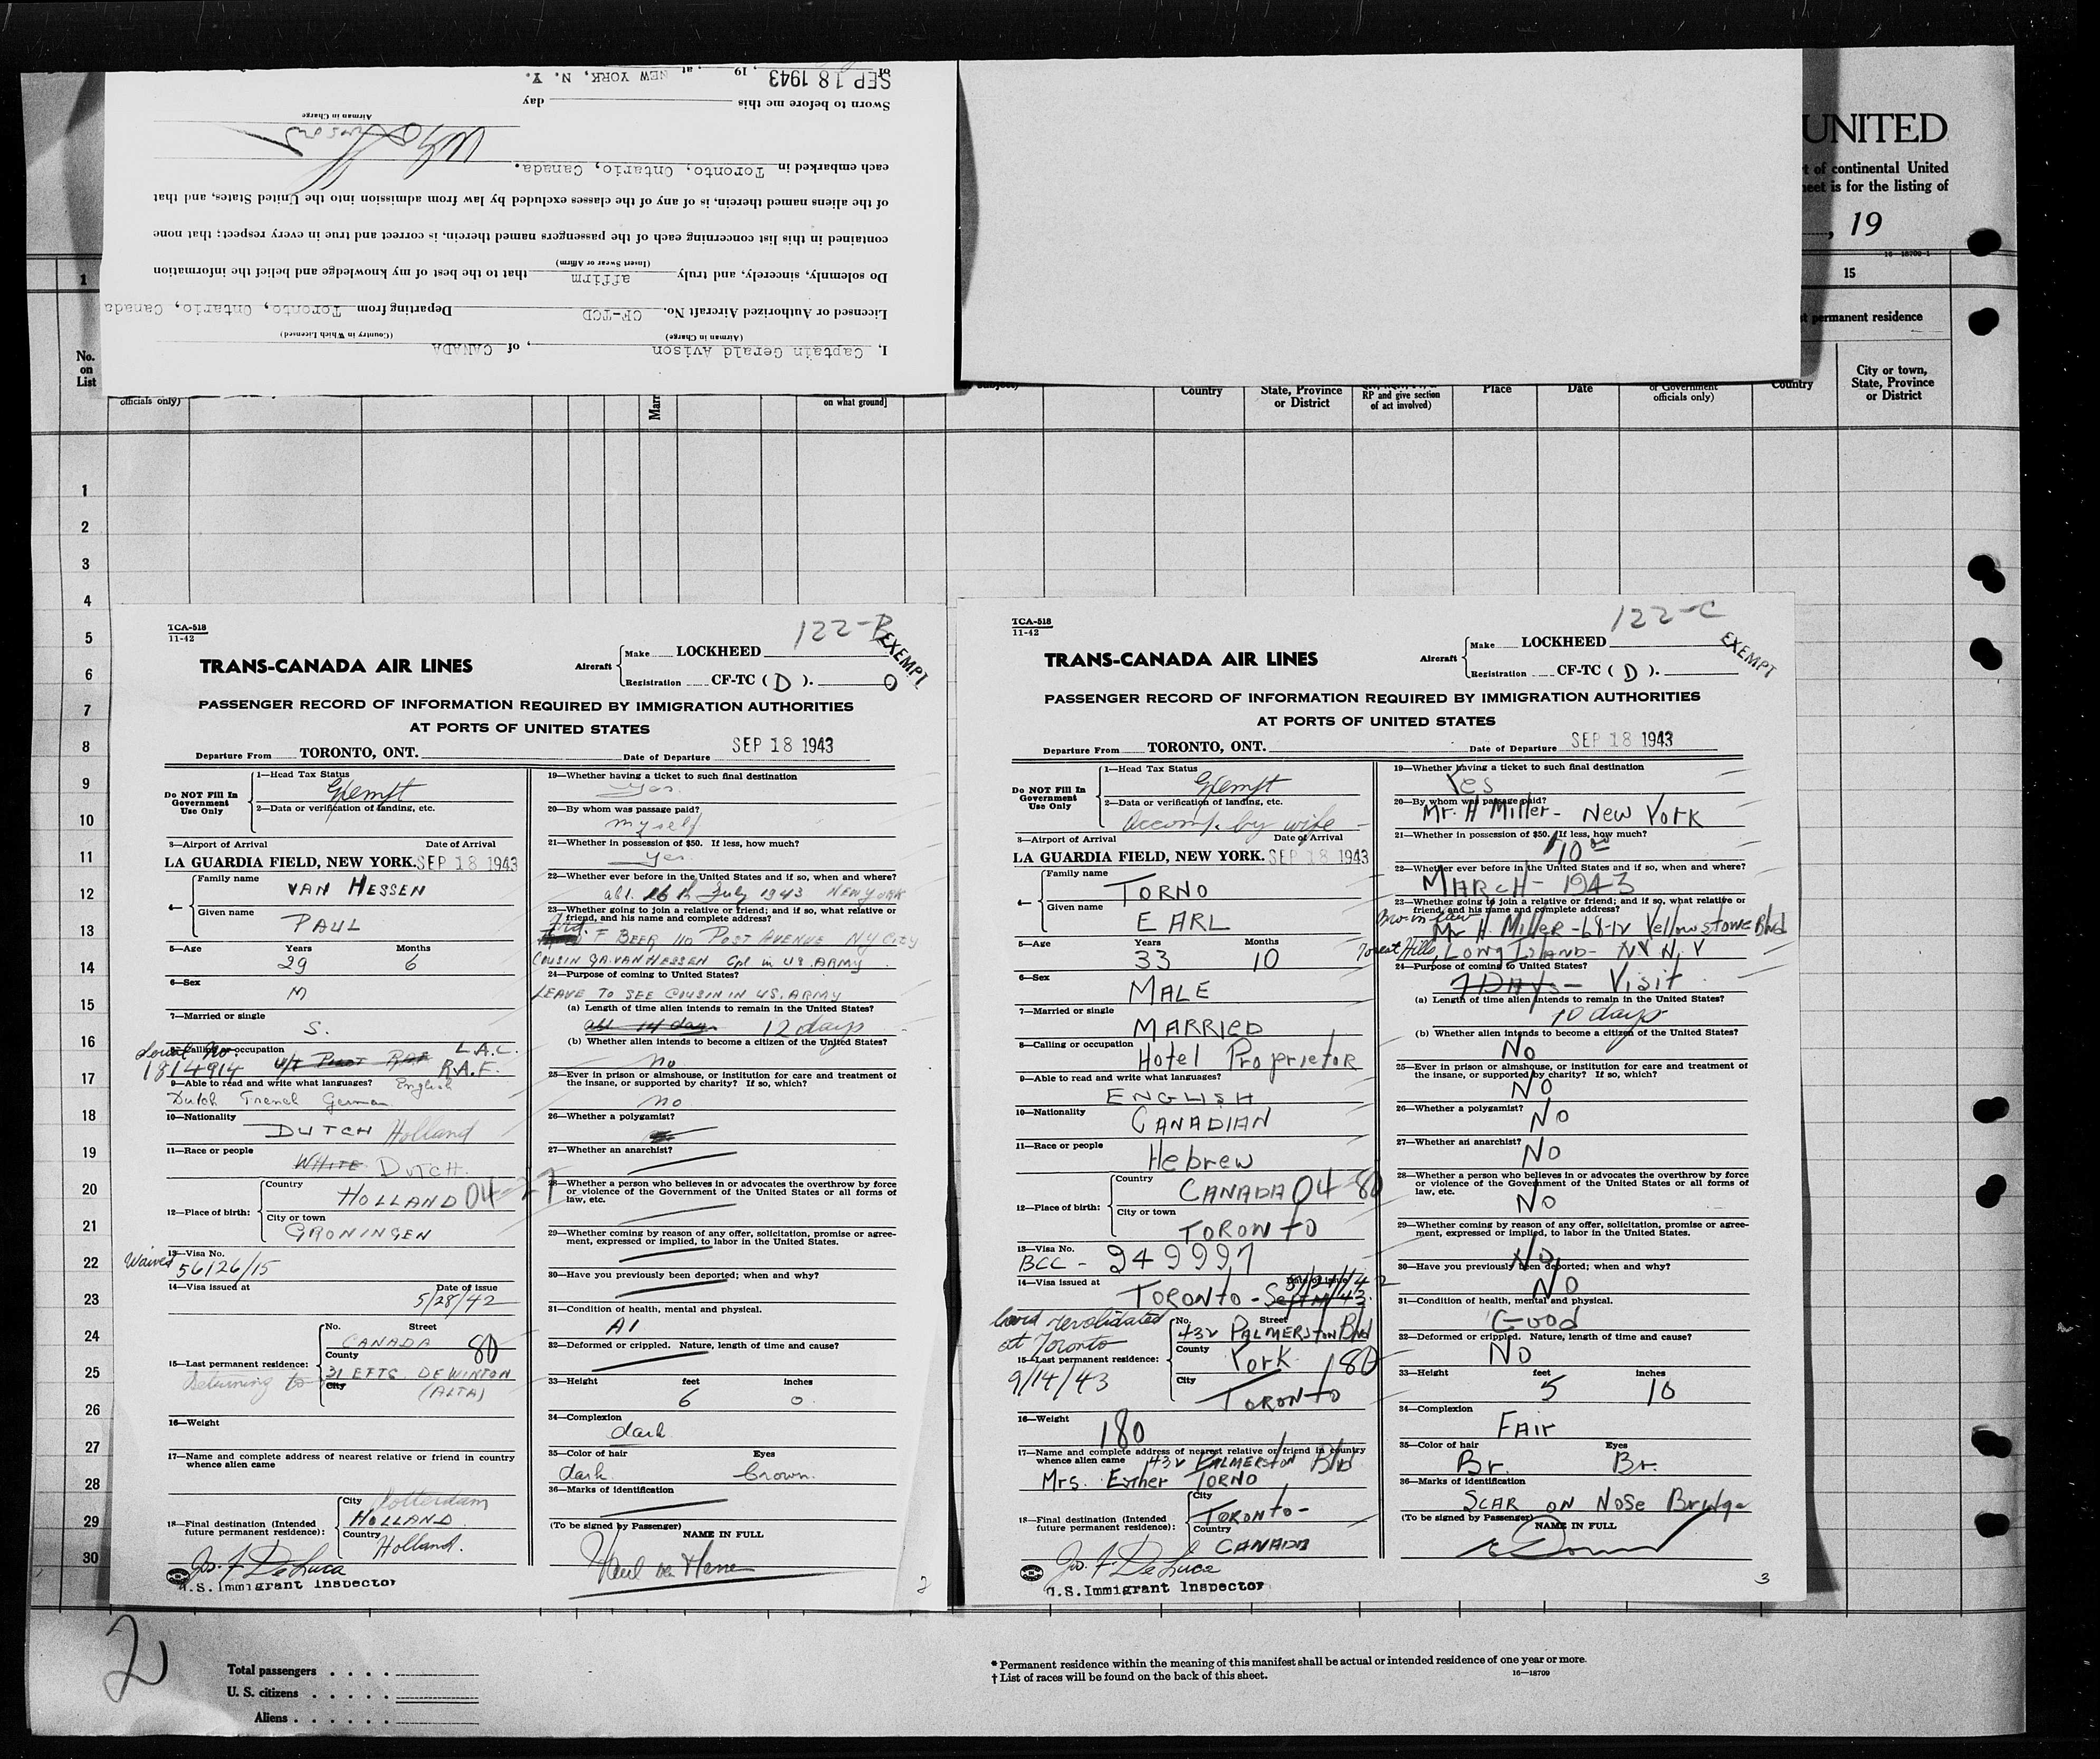 I, Captain Gerald Avison, of CANADA
(Airman in Charge) (Country in Which Licensed)
Licensed or Authorized Aircraft No. CF-TCD Departing from Toronto, Ontario, Canada
Do solemnly, sincerely, and truly affirm that to the best of my knowledge and belief the information
(Insert Swear or Affirm)
contained in this list concerning each of the passengers named therein, is correct and true in every respect; that none
of the aliens named therein, is of any of the classes excluded by law from admission into the United States, and that
each embarked in Toronto, Ontario, Canada.
Airman in Charge
Sworn to before me this day
of SEP 18 1943, 19 , at NEW YORK, N. Y.
UNITED
t of continental United
eet is for the listing of
, 19
16—18709-1
1
15
t permanent residence
No.
on
List
officials only)
Marr
on what ground]
subject)
Country
State, Province
or District
RP and give section
of act involved)
Place
Date
or Government
officials only)
Country
City or town,
State, Province
or District
1
2
3
4
5
6
7
8
9
10
11
12
13
14
15
16
17
18
19
20
21
22
23
24
25
26
27
28
29
30
TCA-518
11-42
122-B
EXEMPT
TRANS-CANADA AIR LINES
Aircraft
Make LOCKHEED
Registration CF-TC ( D ).
PASSENGER RECORD OF INFORMATION REQUIRED BY IMMIGRATION AUTHORITIES
AT PORTS OF UNITED STATES
Departure From TORONTO, ONT. Date of Departure SEP 18 1943
Do NOT Fill In
Government
Use Only
1—Head Tax Status
Exempt
2—Data or verification of landing, etc.
3—Airport of Arrival Date of Arrival
LA GUARDIA FIELD, NEW YORK. SEP 18 1943
4—
Family name
VAN HESSEN
Given name
PAUL
5—Age Years Months
29 6
6—Sex
M
7—Married or single
S.
8—Calling or occupation
Serial No: 1814914 L.A.C.
R.A.F.
9—Able to read and write what languages? English
Dutch French German
10—Nationality
DUTCH Holland
11—Race or people
WHITE DUTCH
12—Place of birth:
Country
HOLLAND 04 27
City or town
GRONINGEN
13—Visa No.
Waived 56126/15
14—Visa issued at Date of issue
5/28/42
15—Last permanent residence:
Returning to
No. Street
CANADA 80
County
31 EFTS DEWINTON
City
(ALTA)
16—Weight
17—Name and complete address of nearest relative or friend in country
whence alien came
18—Final destination (Intended
future permanent residence):
City Rotterdam
HOLLAND
Country
Holland.
Jos. F. DeLuca
U.S. Immigrant Inspector
19—Whether having a ticket to such final destination
Yes.
20—By whom was passage paid?
myself
21—Whether in possession of $50. If less, how much?
Yes
22—Whether ever before in the United States and if so, when and where?
abt. 16th July 1943 NEW YORK
23—Whether going to join a relative or friend; and if so, what relative or
friend, and his name and complete address?
Frd. F BEER 110 POST AVENUE NY CITY
COUSIN VAN HESSEN Cpl in US. ARMY
24—Purpose of coming to United States?
LEAVE TO SEE COUSIN IN US. ARMY
(a) Length of time alien intends to remain in the United States?
abt 14 days 12 days
(b) Whether alien intends to become a citizen of the United States?
No
25—Ever in prison or almshouse, or institution for care and treatment of
the insane, or supported by charity? If so, which?
No
26—Whether a polygamist?
27—Whether an anarchist?
28—Whether a person who believes in or advocates the overthrow by force
or violence of the Government of the United States or all forms of
law, etc.
29—Whether coming by reason of any offer, solicitation, promise or agree-
ment, expressed or implied, to labor in the United States.
30—Have you previously been deported; when and why?
31—Condition of health, mental and physical.
A1
32—Deformed or crippled. Nature, length of time and cause?
33—Height feet inches
6 0
34—Complexion
dark
35—Color of hair Eyes
dark. brown.
36—Marks of identification
(To be signed by Passenger)
NAME IN FULL
Paul van Hessen
2
TCA-518
11-42
122-C
EXEMPT
TRANS-CANADA AIR LINES
Aircraft
Make LOCKHEED
Registration CF-TC ( D ).
PASSENGER RECORD OF INFORMATION REQUIRED BY IMMIGRATION AUTHORITIES
AT PORTS OF UNITED STATES
Departure From TORONTO, ONT. Date of Departure SEP 18 1943
Do NOT Fill In
Government
Use Only
1—Head Tax Status
Exempt
2—Data or verification of landing, etc.
Accomp. by wife
3—Airport of Arrival Date of Arrival
LA GUARDIA FIELD, NEW YORK. SEP 18 1943
4—
Family name
TORNO
Given name
EARL
5—Age Years Months
33 10
6—Sex
MALE
7—Married or single
MARRIED
8—Calling or occupation
Hotel Proprietor
9—Able to read and write what languages?
ENGLISH
10—Nationality
CANADIAN
11—Race or people
Hebrew
12—Place of birth:
Country
CANADA 04 80
City or town
TORONTO
13—Visa No.
BCC - 249997
14—Visa issued at Date of issue
TORONTO -
revalidated
at Toronto
9/14/43
15—Last permanent residence:
No. Street
432 PALMERSTON Blvd
County
York 180
City
TORONTO
16—Weight
180
17—Name and complete address of nearest relative or friend in country
whence alien came 432 PALMERSTON Blvd
Mrs. Esther TORNO
18—Final destination (Intended
future permanent residence):
City
TORONTO-
Country
CANADA
Jos. F. DeLuca
U.S. Immigrant Inspector
19—Whether having a ticket to such final destination
Yes
20—By whom was passage paid?
Mr. H Miller - New York
21—Whether in possession of $50. If less, how much?
$10.00
22—Whether ever before in the United States and if so, when and where?
MARCH - 1943
23—Whether going to join a relative or friend; and if so, what relative or
friend, and his name and complete address?
Bro in law Mr H. Miller - 68-12 Yellowstone Blvd
Forest Hills, LONG ISLAND - NY N.Y
24—Purpose of coming to United States?
7 DAYS - Visit
(a) Length of time alien intends to remain in the United States?
10 days
(b) Whether alien intends to become a citizen of the United States?
No
25—Ever in prison or almshouse, or institution for care and treatment of
the insane, or supported by charity? If so, which?
No
26—Whether a polygamist?
No
27—Whether an anarchist?
No
28—Whether a person who believes in or advocates the overthrow by force
or violence of the Government of the United States or all forms of
law, etc.
No
29—Whether coming by reason of any offer, solicitation, promise or agree-
ment, expressed or implied, to labor in the United States.
No
30—Have you previously been deported; when and why?
No
31—Condition of health, mental and physical.
Good
32—Deformed or crippled. Nature, length of time and cause?
No
33—Height feet inches
5 10
34—Complexion
FAIr
35—Color of hair Eyes
Br. Br.
36—Marks of identification
SCAR ON NOSE Bridge
(To be signed by Passenger)
NAME IN FULL
3
2
Total passengers . . . .
U. S. citizens . . . . .
Aliens . . . . . .
* Permanent residence within the meaning of this manifest shall be actual or intended residence of one year or more.
† List of races will be found on the back of this sheet.
16—18709